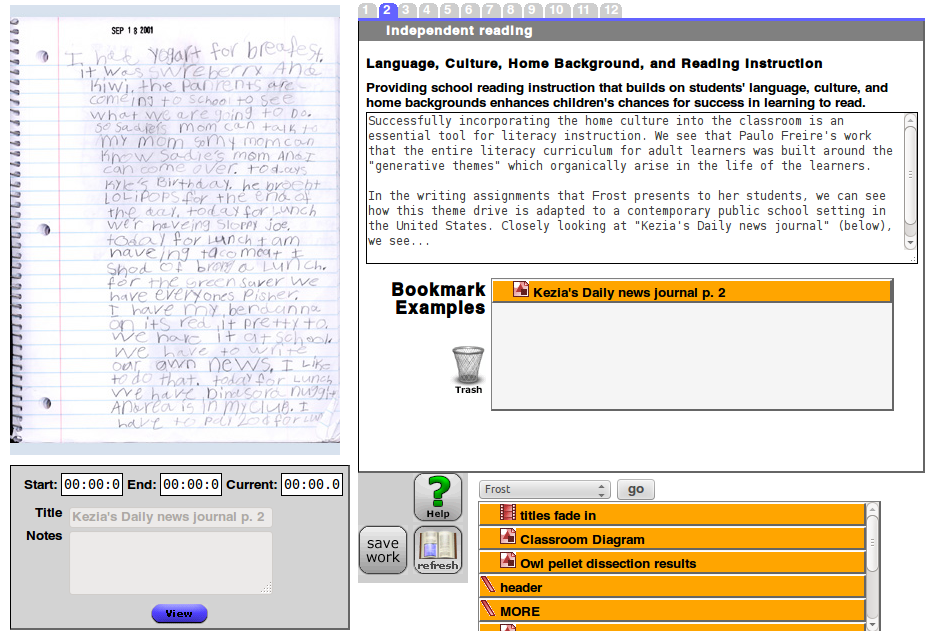 SEP 18 2001
I hat yogart for breafest.
it was swreberry And
kiwi. the Parrents are
comeing to school to see
what we are going to Do.
so sadies mom can talk to
my mom so my mom can
know Sadie's mom And I
can come over. todays
Kyle's Birthday. he broebt
LOLiPOPS for the end of
the day. today for Lunch
we'r haveing Sloppy Joe,
today for Lunch I am
haveing taco meat I
Shod of brong a Lunch.
for the green saver We
have everyones Pisher.
I have my bendanna
on its red, it pretty to.
We have it at school.
We have to write
our own news. I Like
to do that. today for Lunch
we have Dinasora
Andrea is in my club. I
have to for
1 2 3 4 5 6 7 8 9 10 11 12
Independent reading
Language, Culture, Home Background, and Reading Instruction
Providing school reading instruction that builds on students' language, culture, and
home backgrounds enhances children's chances for success in learning to read.
Successfully incorporating the home culture into the classroom is an
essential tool for literacy instruction. We see that Paulo Freire's work
that the entire literacy curriculum for adult learners was built around the
"generative themes" which organically arise in the life of the learners.
In the writing assignments that Frost presents to her students, we can see
how this theme drive is adapted to a contemporary public school setting in
the United States. Closely looking at "Kezia's Daily news journal" (below),
we see...
Bookmark
Examples
Kezia's Daily news journal p. 2
Trash
Start: 00:00:0 End: 00:00:0 Current: 00:00.0
Title Kezia's Daily news journal p. 2
Notes
View
Help
save
work
refresh
Frost go
titles fade in
Classroom Diagram
Owl pellet dissection results
header
MORE